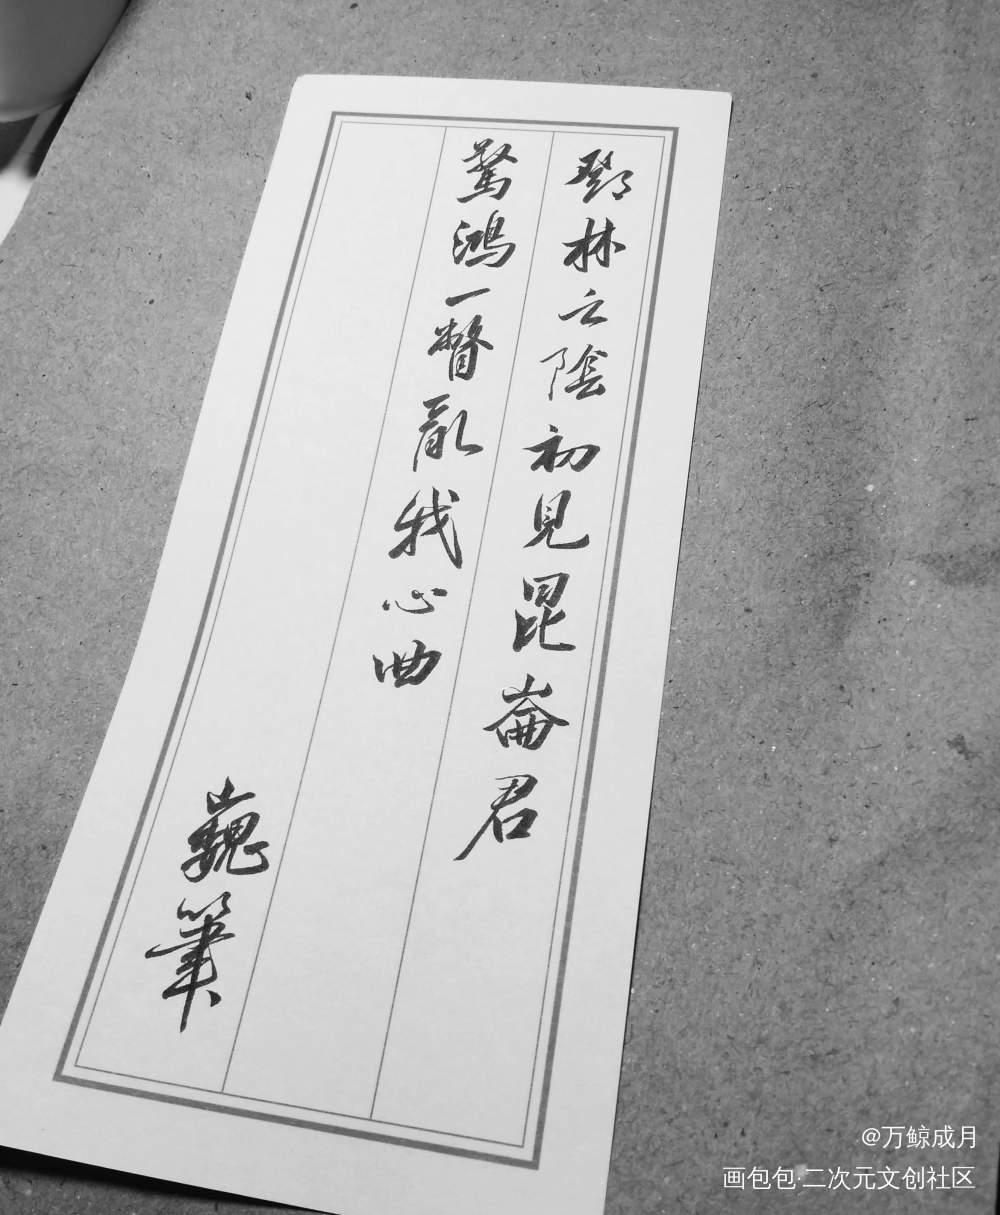 鄧林之陰初見昆崙君
驚鴻一瞥亂我心曲
巍筆
@万鲸成月
画包包·二次元文创社区